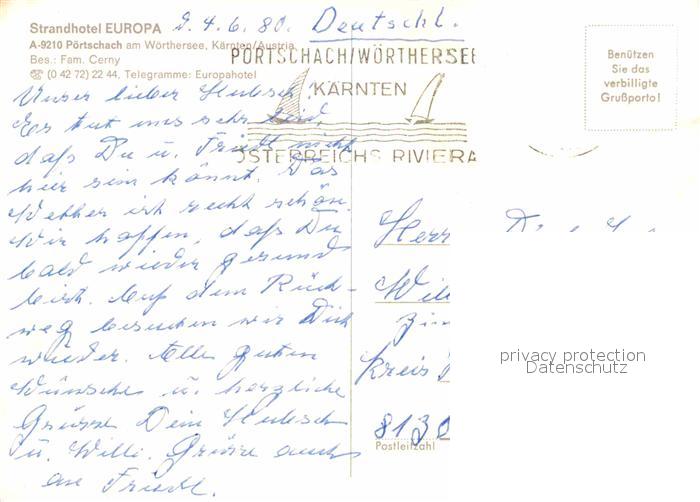 Strandhotel EUROPA
A-9210 Pörtschach am Wörthersee, Kärnten/Austria
Bes.: Fam. Cerny
☎ (0 42 72) 22 44, Telegramme: Europahotel
4.6.80. Deutschl.
PÖRTSCHACH/WÖRTHERSEE
KÄRNTEN
ÖSTERREICHS RIVIERA
Benützen
Sie das
verbilligte
Grußporto!
Unser lieber
Es tut uns sehr leid,
daß Du u. Friedl nicht
hier sein könnt. Das
Wetter ist recht schön.
Wir hoffen, daß Du
bald wieder gesund
bist. Auf dem Rück-
weg besuchen wir Dich
wieder. Alle guten
Wünsche u. herzliche
Grüsse Dein
u. Willi. Grüsse auch
an Friedl.
Herr
Kreis
privacy protection
Datenschutz
Postleitzahl